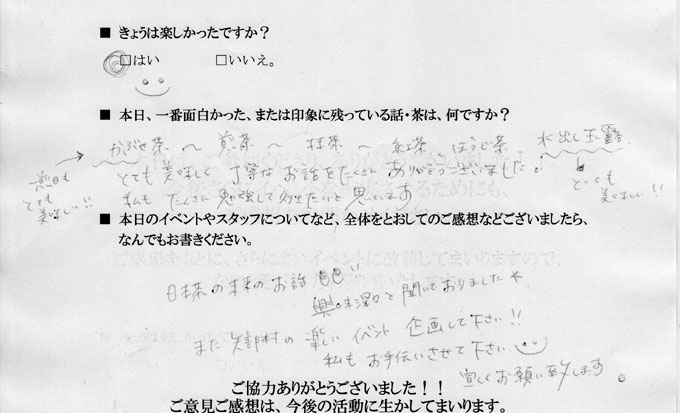 ■ きょうは楽しかったですか？
□はい □いいえ。
■ 本日、一番面白かった、または印象に残っている話・茶は、何ですか？
かぶせ茶 〜 煎茶 〜 抹茶 〜 紅茶 ほうじ茶 水出し玉露
煎目も
とても
美味しい!!
とても美味しく 丁寧な お話をたくさん ありがとうございました。
私も たくさん 勉強して行きたいと 思っています
とっても
美味しい!!
■ 本日のイベントやスタッフについてなど、全体をとおしてのご感想などございましたら、
なんでもお書きください。
日本茶の未来のお話 !!
興味深りと聞いておりました
また 矢部村の 楽しい イベント 企画して下さい!!
私も お手伝いさせて下さい
宜しくお願い致します。
ご協力ありがとうございました！！
ご意見ご感想は、今後の活動に生かしてまいります。